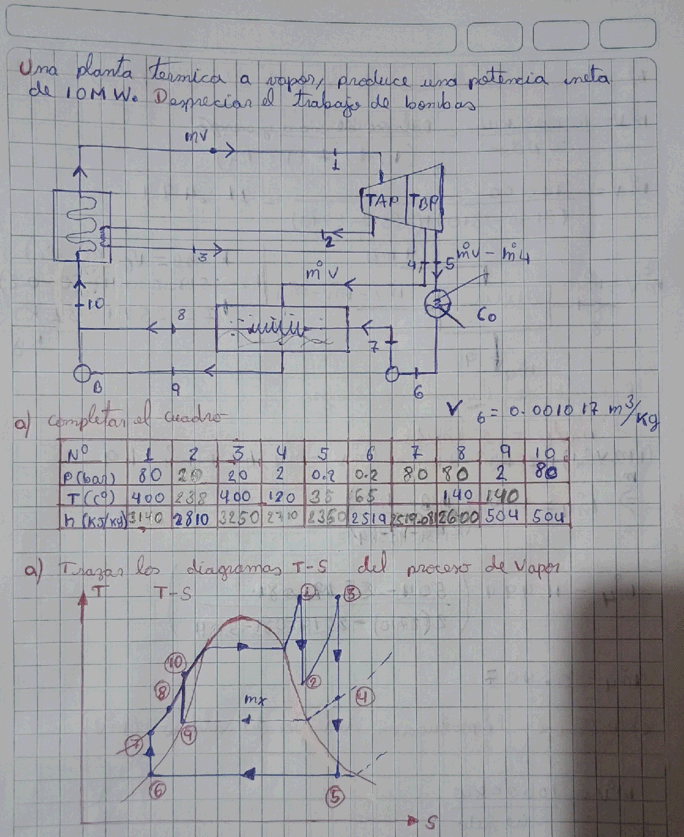 Una planta térmica a vapor, produce una potencia neta
de 10MW. Despreciar el trabajo de bombas
mv
1
TAP TBP
2
3
4 5 ṁv - ṁ4
ṁv
10
Co
8
7
B
9
6
V6 = 0.001017 m³/kg
a) completar el cuadro
N° 1 2 3 4 5 6 7 8 9 10
P(bar) 80 20 20 2 0.2 0.2 80 80 2 80
T(C°) 400 238 400 120 35 65 140 140
h(KJ/kg) 3140 2810 3250 2710 2350 2519 2600 504 504
a) Trazar los diagramas T-S del proceso de vapor
T T-S
1 3
10
2
8
4
mx
7
9
6
5
S